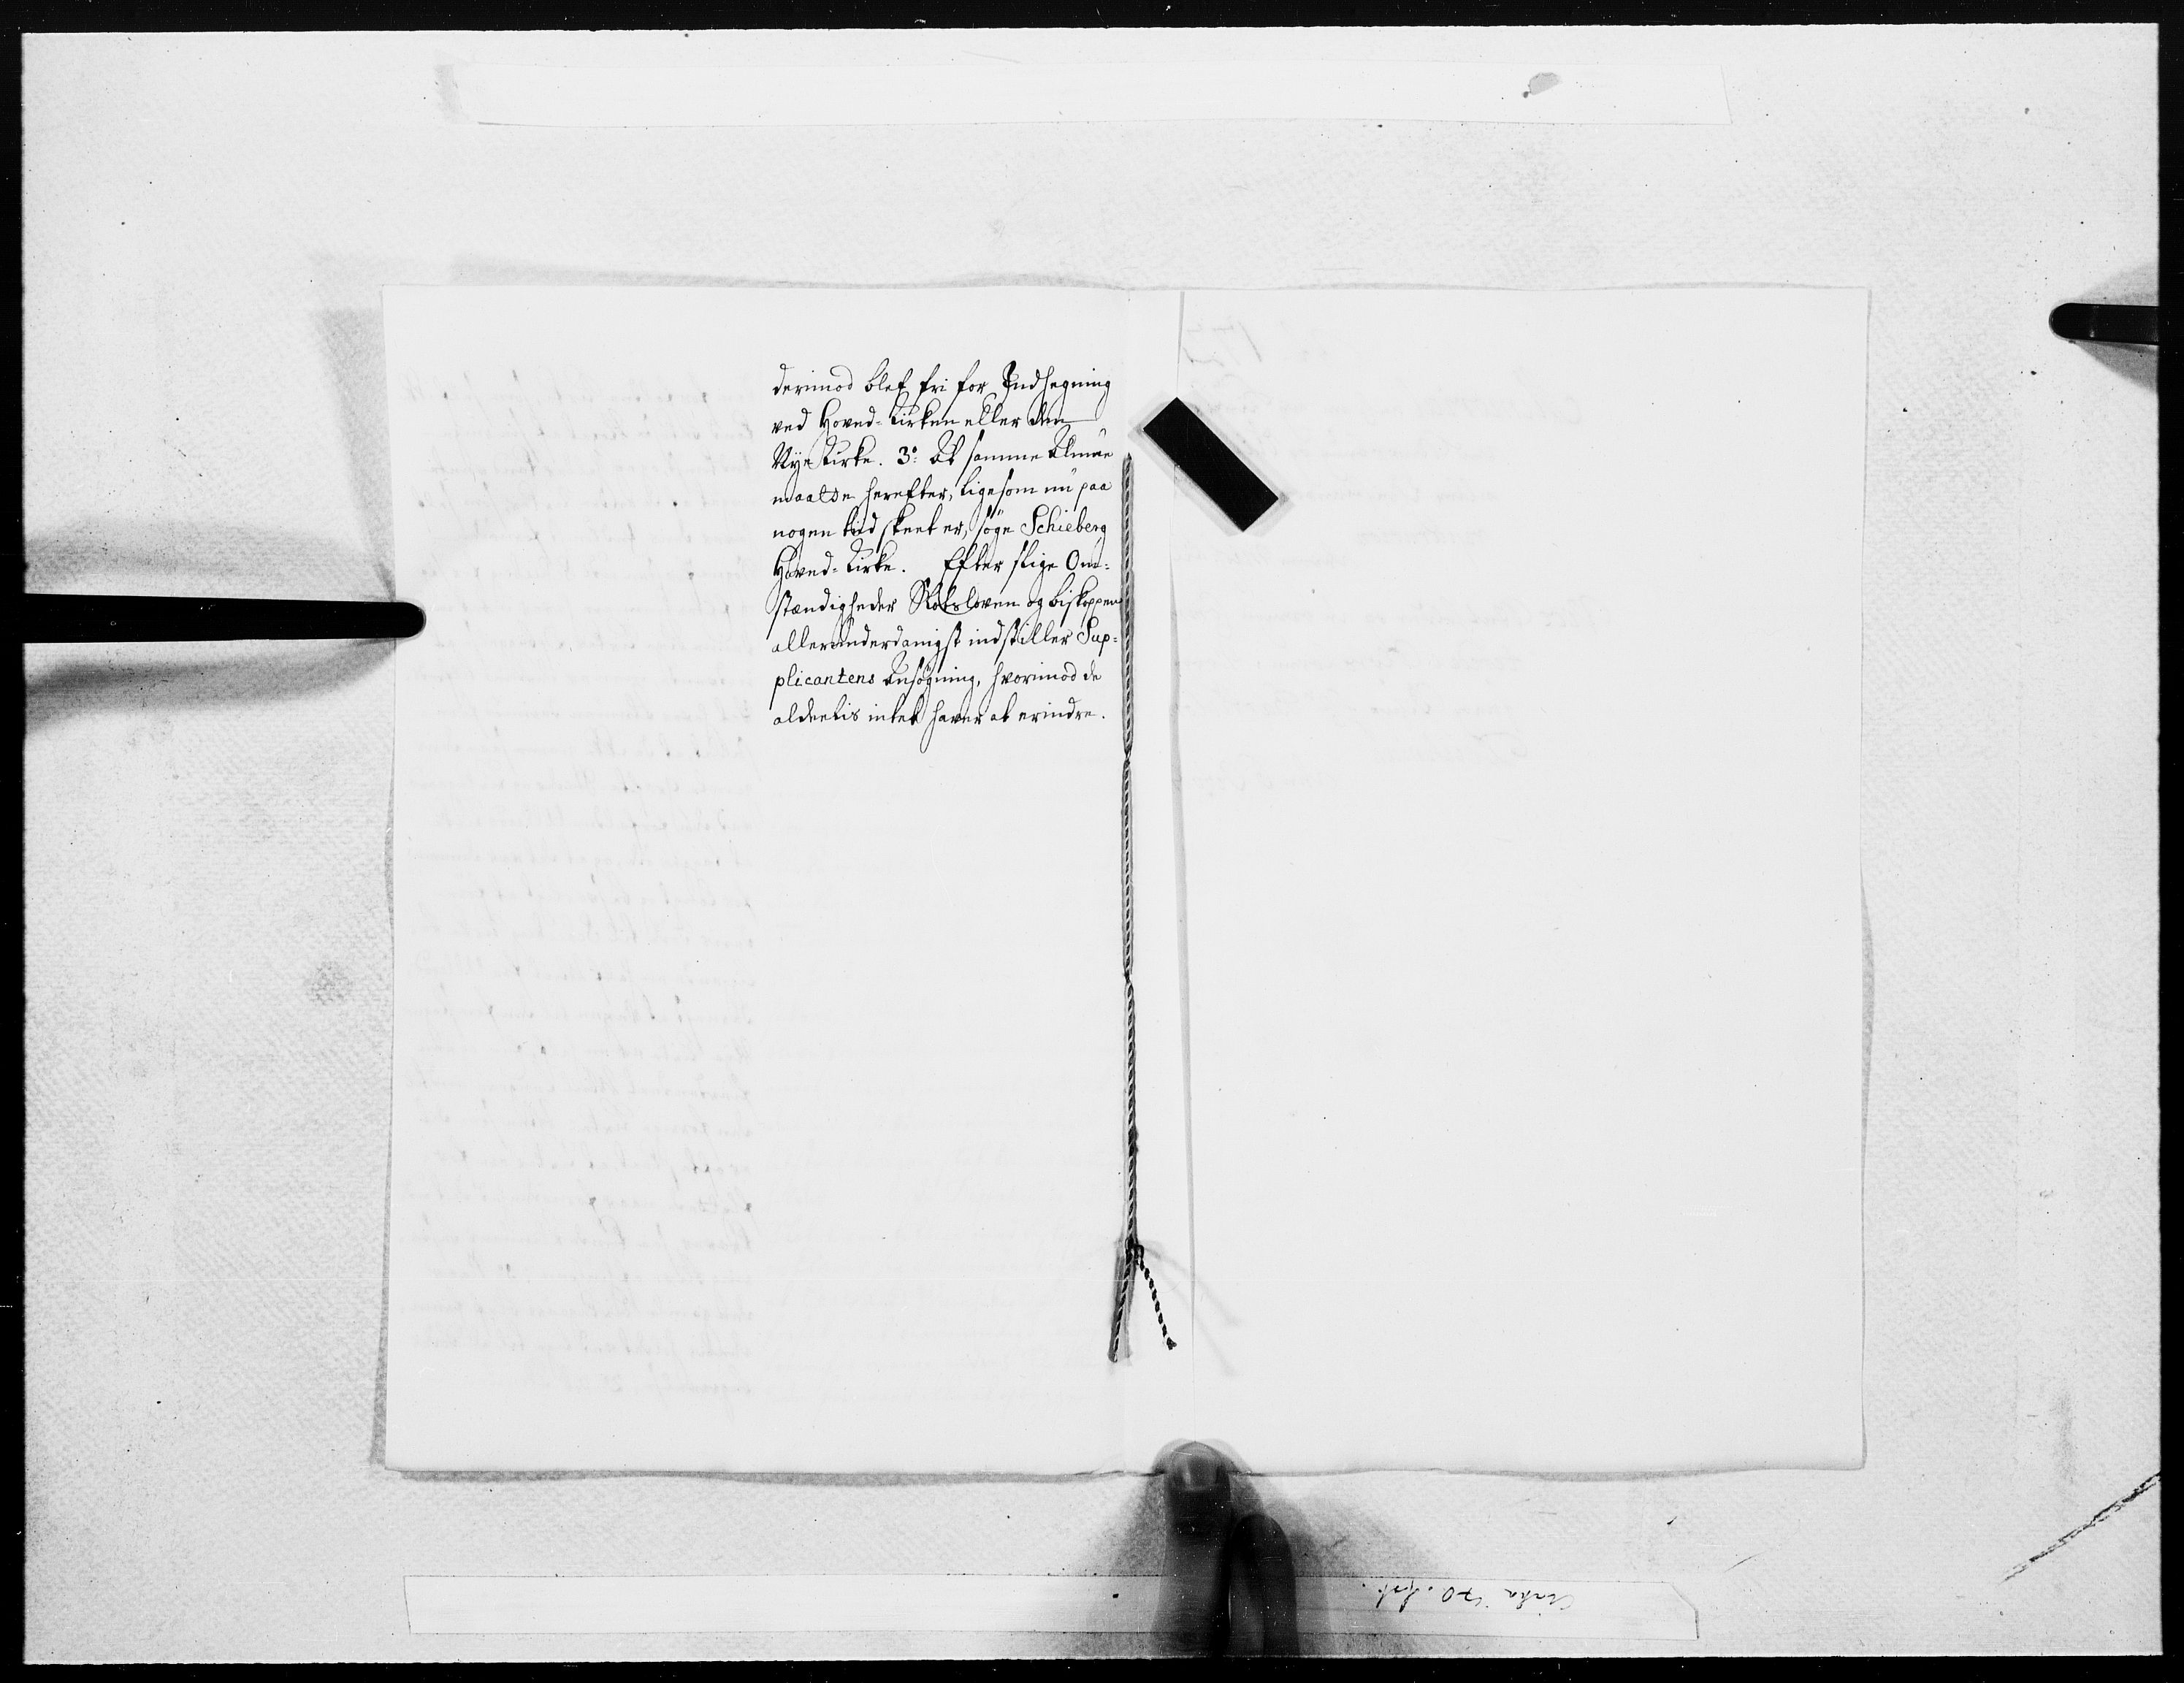 derimod blef fri for Indhegning
ved Hoved-Kirken eller den
Nye Kirke. 3º: At samme Almue
maatte herefter, ligesom nu paa
nogen tiid skeet er, søge Schieberg
Hoved-Kirke. Efter slige Om-
stændigheder Rotsloven og biskoppen
allerunderdanigst indstiller Sup-
plicantens Ansøgning, hvorimod de
aldeelis intet haver at erindre.